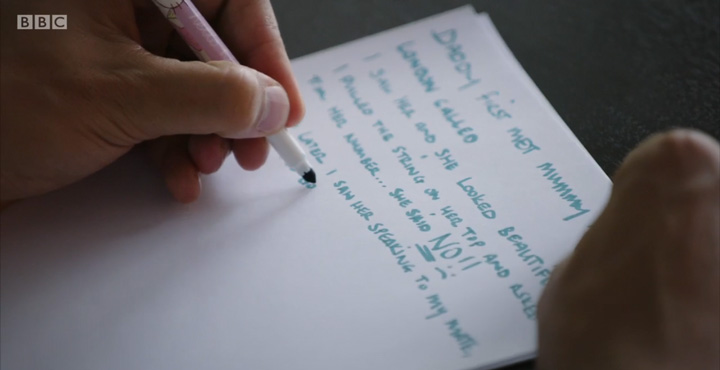 BBC
DADDY FIRST MET MUMMY
LONDON CALLED
I SAW HER AND SHE LOOKED BEAUTIF
I PULLED THE STRING ON HER TOP AND ASKED
HER NUMBER... SHE SAID NO!!
LATER I SAW HER SPEAKING TO MY MATE,